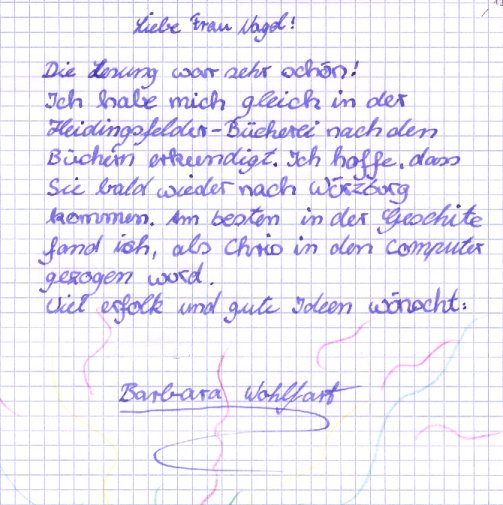 Liebe Frau Nagel!
Die Lesung war sehr schön!
Ich habe mich gleich in der
Heidingsfelder-Bücherei nach den
Büchern erkundigt. Ich hoffe, dass
Sie bald wieder nach Würzburg
kommen. Am besten in der Geschite
fand ich, als Chris in den Computer
gezogen wurd.
Viel erfolk und gute Ideen wünscht:
Barbara Wohlfart